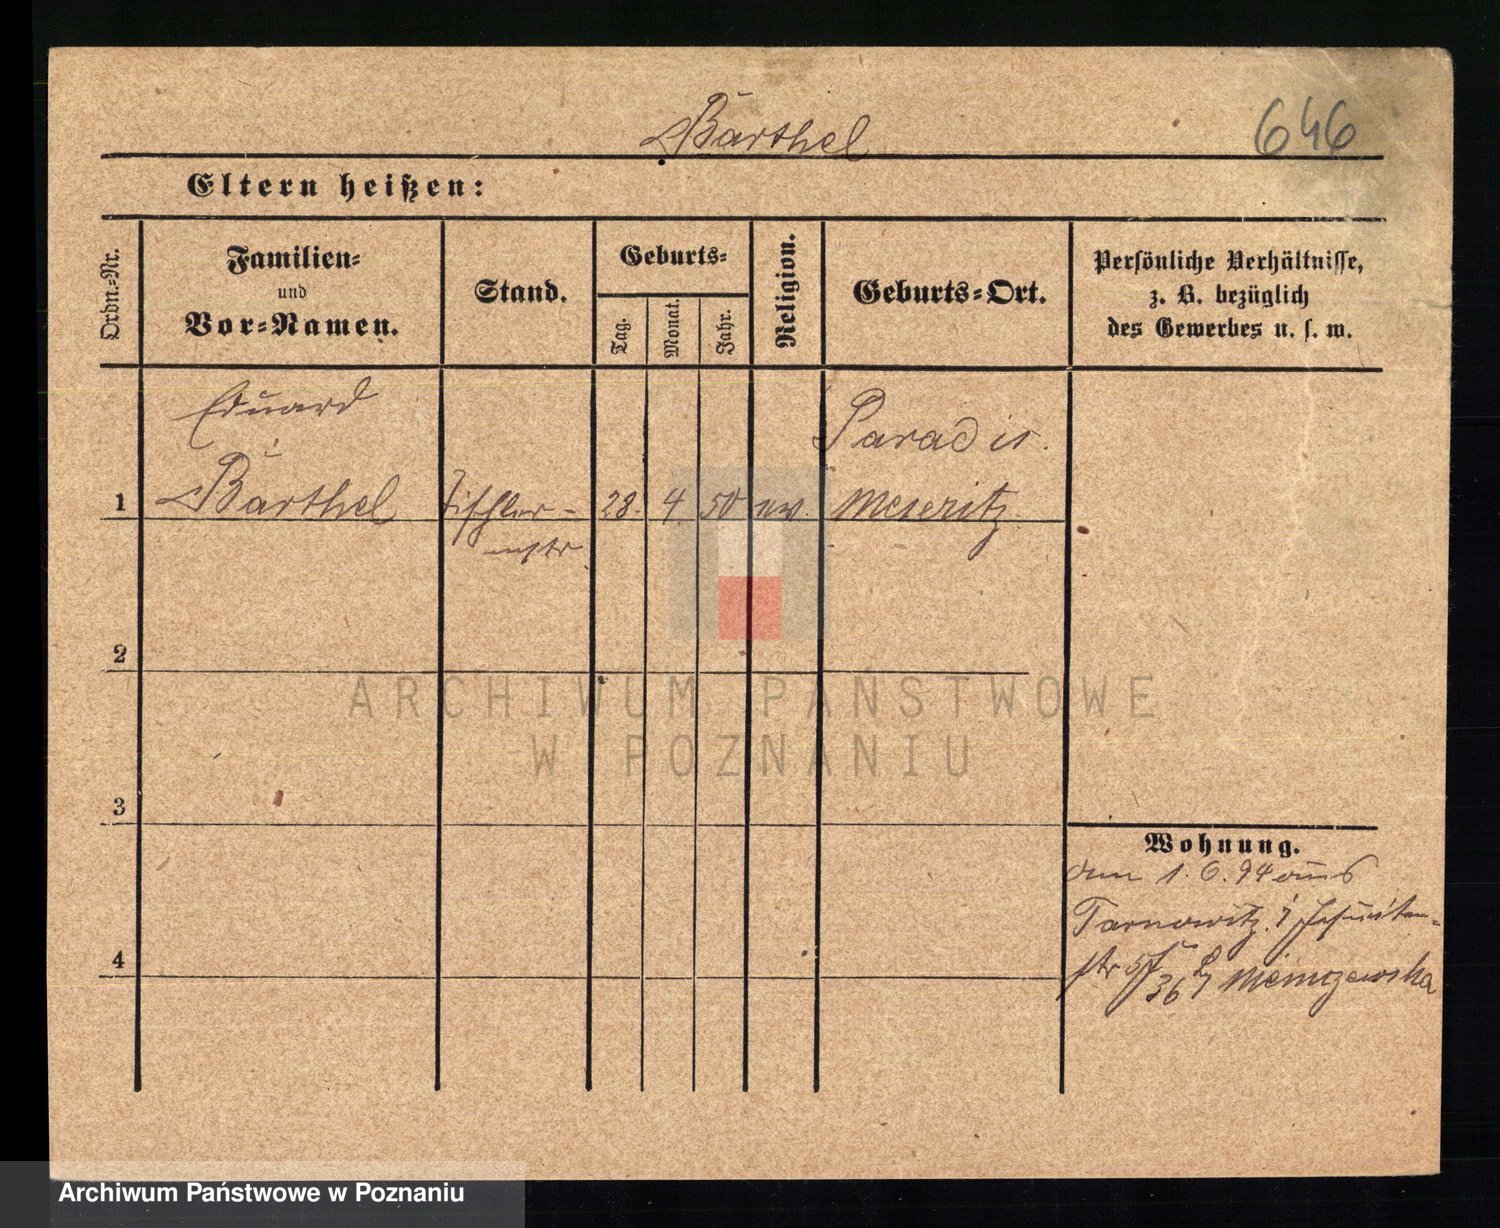 Bärthel
646
Eltern heißen:
Ordn.-Nr.
Familien-
und
Vor-Namen.
Stand.
Geburts-
Tag.
Monat.
Jahr.
Religion.
Geburts-Ort.
Persönliche Verhältnisse,
z. B. bezüglich
des Gewerbes u. s. w.
Eduard
Paradis.
1 Bärthel Tischler- 28. 4. 50 ev. Meseritz
mstr.
2
ARCHIWUM PAŃSTWOWE
W POZNANIU
3
Wohnung.
1. 6. 94 aus
Tarnowitz. Jesuiten-
4 str 5
36
Archiwum Państwowe w Poznaniu